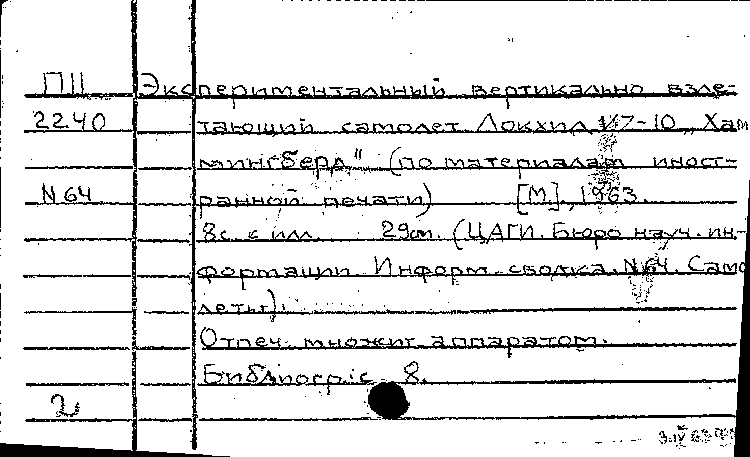 П11 Экспериментальный вертикально взле-
2240 тающий самолет Локхид VZ-10 „Хам
мингберд" (по материалам иност-
N 64 ранной печати) [М.], 1963.
8с. с илл. 29см. (ЦАГИ. Бюро науч. ин-
формации. Информ. сводка. N 64. Само
леты).
Отпеч. множит. аппаратом.
Библиогр.: с. 8.
2